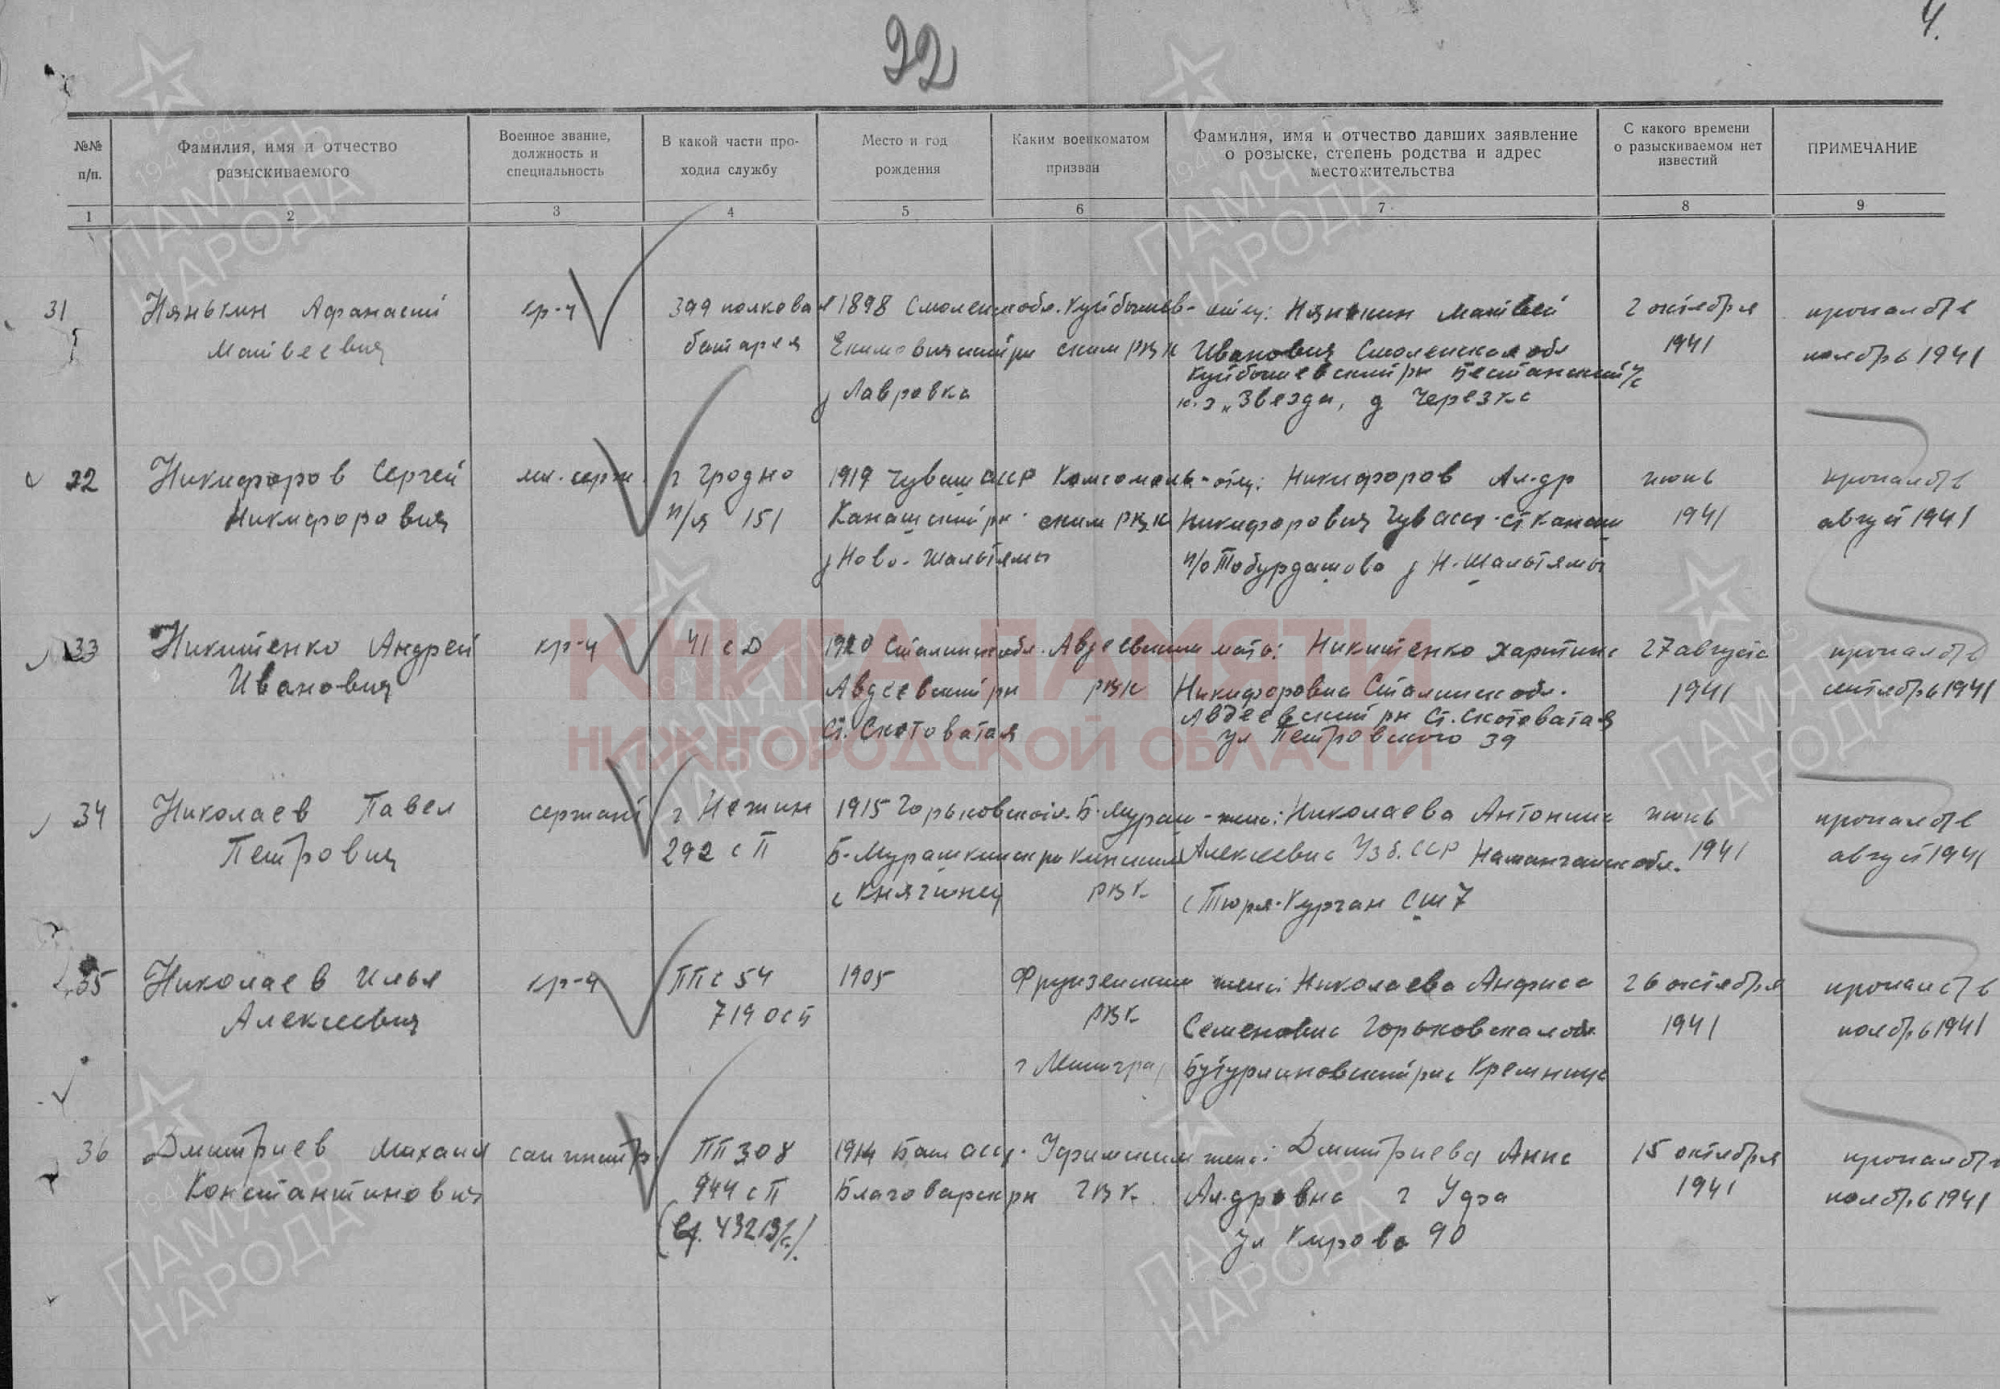 22
4.
№№ п/п.
Фамилия, имя и отчество разыскиваемого
Военное звание, должность и специальность
В какой части проходил службу
Место и год рождения
Каким военкоматом призван
Фамилия, имя и отчество давших заявление о розыске, степень родства и адрес местожительства
С какого времени о разыскиваемом нет известий
ПРИМЕЧАНИЕ
1 2 3 4 5 6 7 8 9
31 Нянькин Афанасий кр-ц 399 полковая 1898 Смоленск обл. Куйбышев- отец: Нянькин Матвей 2 октября пропал б/в
Матвеевич батарея Екимовический рн ским РВК Иванович Смоленская обл 1941 ноябрь 1941
Куйбышевский рн
д Лавровка к-з "Звезда, д Черезка
32 Никифоров Сергей мл. серж. г Гродно 1919 Чуваш АССР Комсомоль- отец: Никифоров Ал-др июнь пропал б/в
Никифорович п/я 151 Канашский рн ским РВК Никифорович Чув АССР ст Канаш 1941 август 1941
д Ново-Шальтямы п/о Тобурданово д Н-Шальтямы
33 Никитенко Андрей кр-ц 41 с Д 1920 Сталинск обл. Авдеевским мать: Никитенко Харитина 27 августа пропал б/в
Иванович Авдеевский рн РВК Никифоровна Сталинск обл. 1941 сентябрь 1941
ст. Скотоватая Авдеевский рн ст. Скотоватая
ул Петровского 39
34 Николаев Павел сержант г Нежин 1915 Горьковск обл. Б-Мураш- жена: Николаева Антонина июнь пропал б/в
Петрович 292 с П Б-Мурашкинск рн кинским Алексеевна Узб. ССР Наманганск обл. 1941 август 1941
с РВК с Тюря-Курган СШ 7
35 Николаев Илья кр-ц ППС 54 1905 Фрунзенским жена: Николаева Анфиса 26 октября пропал б/в
Алексеевич 719 ОСП РВК Семеновна Горьковская обл 1941 ноябрь 1941
г Ленинград Бутурлиновский рн с Кремницк
36 Дмитриев Михаил сан инстр. ПП 308 1914 Баш АССР Уфимским жена: Дмитриева Анна 15 октября пропал б/в
Константинович 944 с П Благоварск рн ГВК Ал-дровна г Уфа 1941 ноябрь 1941
ул Кирова 90
КНИГА ПАМЯТИ
НИЖЕГОРОДСКОЙ ОБЛАСТИ
ПАМЯТЬ НАРОДА
ПАМЯТЬ НАРОДА
ПАМЯТЬ НАРОДА
ПАМЯТЬ НАРОДА
ПАМЯТЬ НАРОДА
ПАМЯТЬ НАРОДА